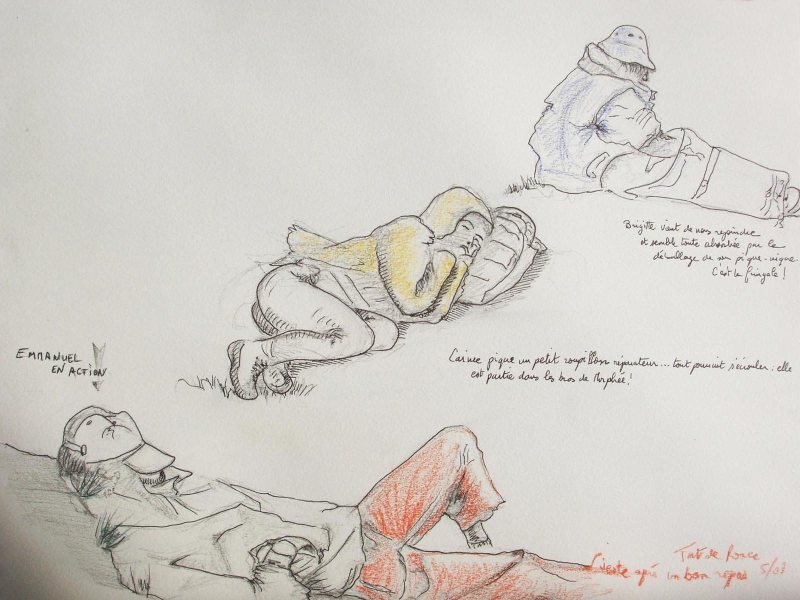 Brigitte vient de nous rejoindre
et semble toute absorbée par le
déballage de son pique-nique.
C'est la fringale!
EMMANUEL
EN ACTION
Carinee pique un petit roupillon réparateur... tout pourrait s'écrouler : elle
est partie dans les bras de Morphée!
de
Sieste après un bon repas 5/03